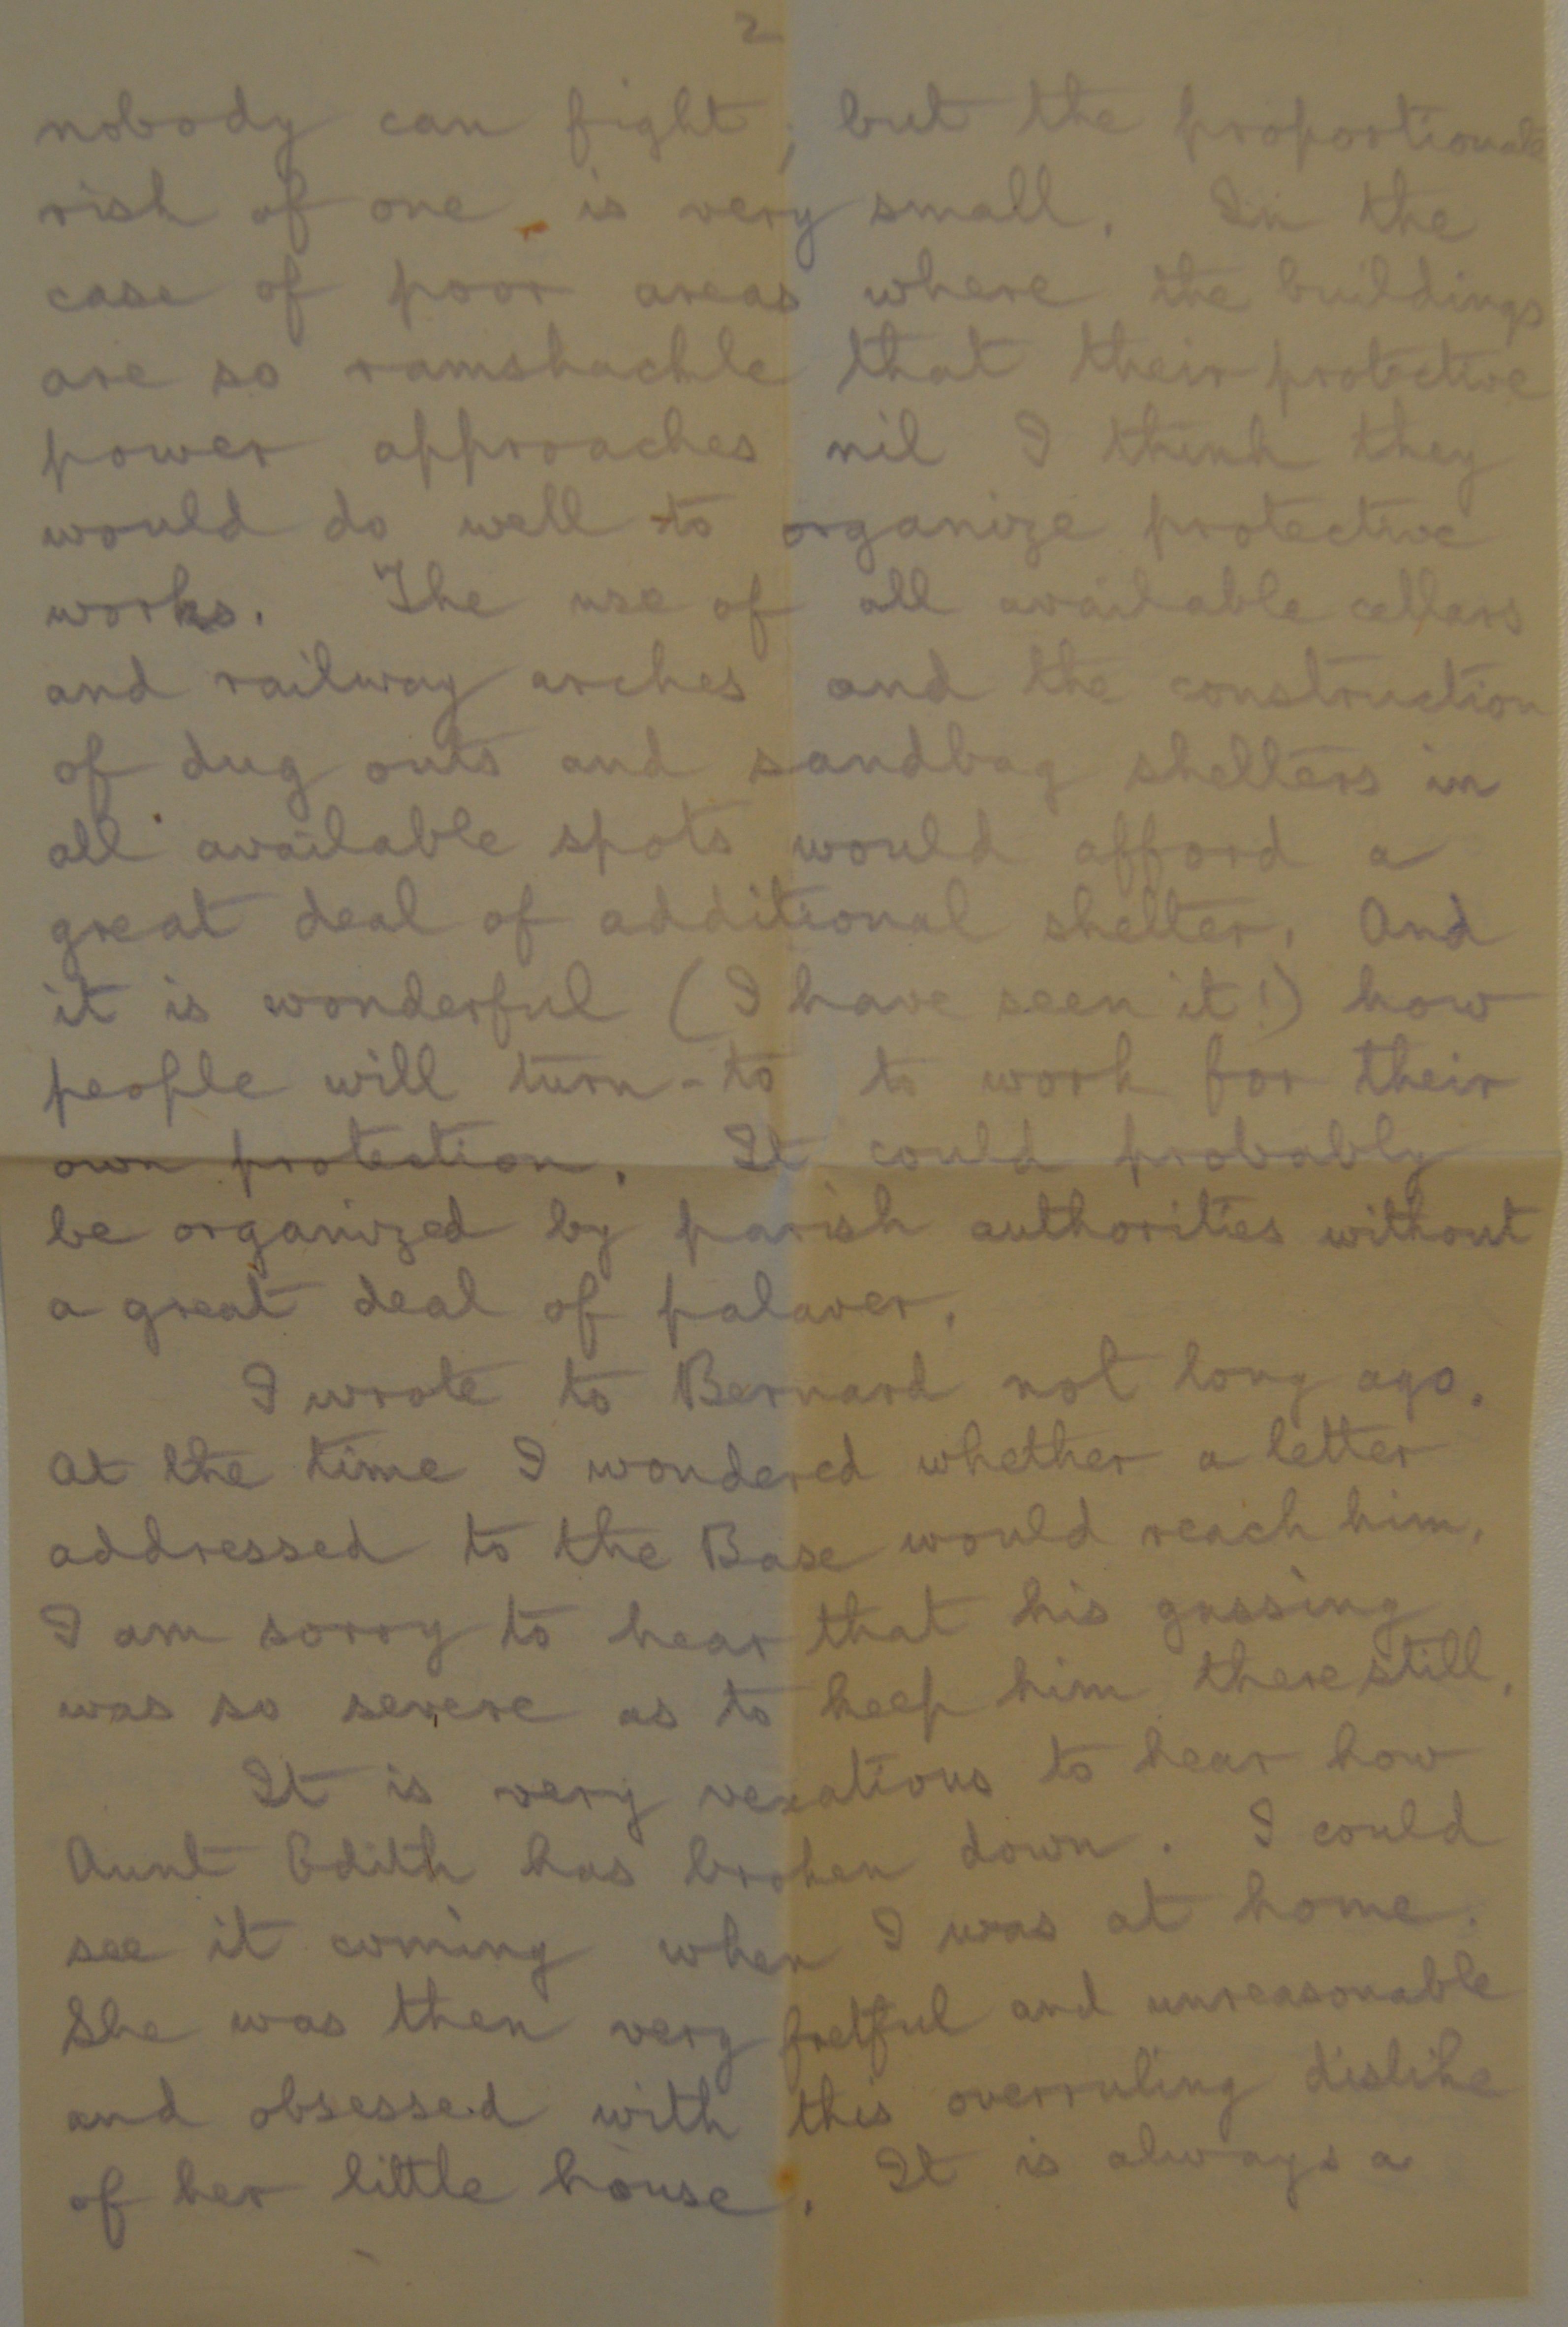 2
nobody can fight; but the proportionate
risk of one is very small. In the
case of poor areas where the buildings
are so ramshackle that their protective
power approaches nil I think they
would do well to organize protective
works. The use of all available cellars
and railway arches and the construction
of dug outs and sandbag shelters in
all available spots would afford a
great deal of additional shelter. And
it is wonderful (I have seen it!) how
people will turn-to to work for their
own protection. It could probably
be organized by parish authorities without
a great deal of palaver.
I wrote to Bernard not long ago.
At the time I wondered whether a letter
addressed to the Base would reach him.
I am sorry to hear that his gassing
was so severe as to keep him there still.
It is very vexatious to hear how
Aunt Edith has broken down. I could
see it coming when I was at home.
She was then very fretful and unreasonable
and obsessed with this overruling dislike
of her little house. It is always a